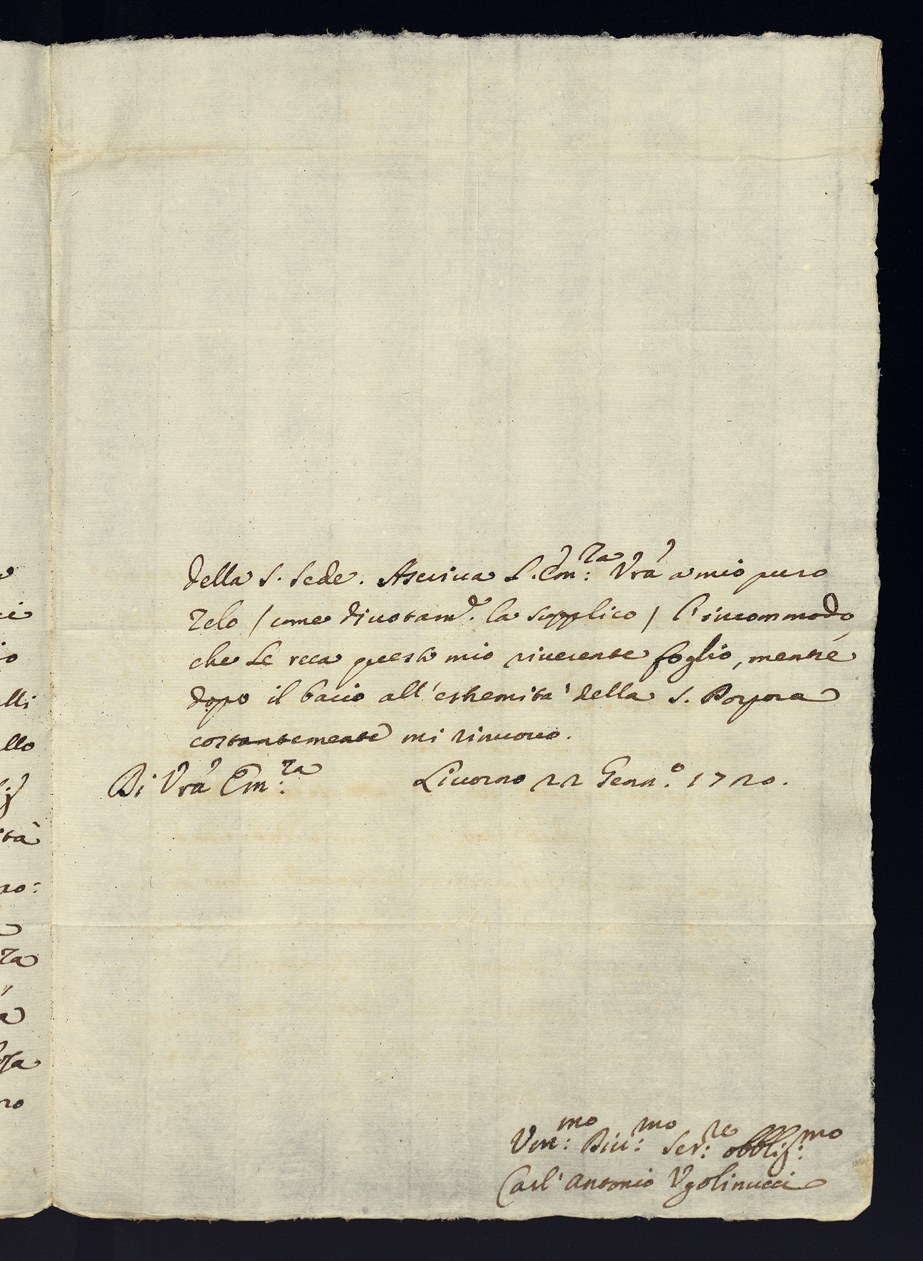 della S. Sede. Ascriva L'Em:za Vrã a mio puro
Zelo / come divotam.e la supplico / l'incommodo,
che Le reca questo mio riverente foglio, mentre
dopo il bacio all'estremità della S. Porpora
costantemente mi rinuovo.
Di Vrã Em:za Livorno 22 Genn:o 1720.
Um:mo Div:mo Ser:re obblig:mo
Carl'Antonio Vgolinucci
alli
allo
ità
no:
za
no